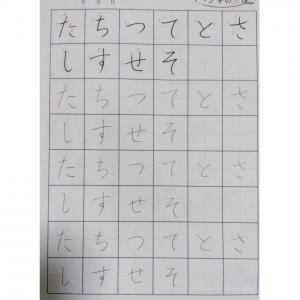 たちつてとさ
しすせそ
たちつてとさ
しすせそ
たちつてとさ
しすせそ
たちつてとさ
しすせそ